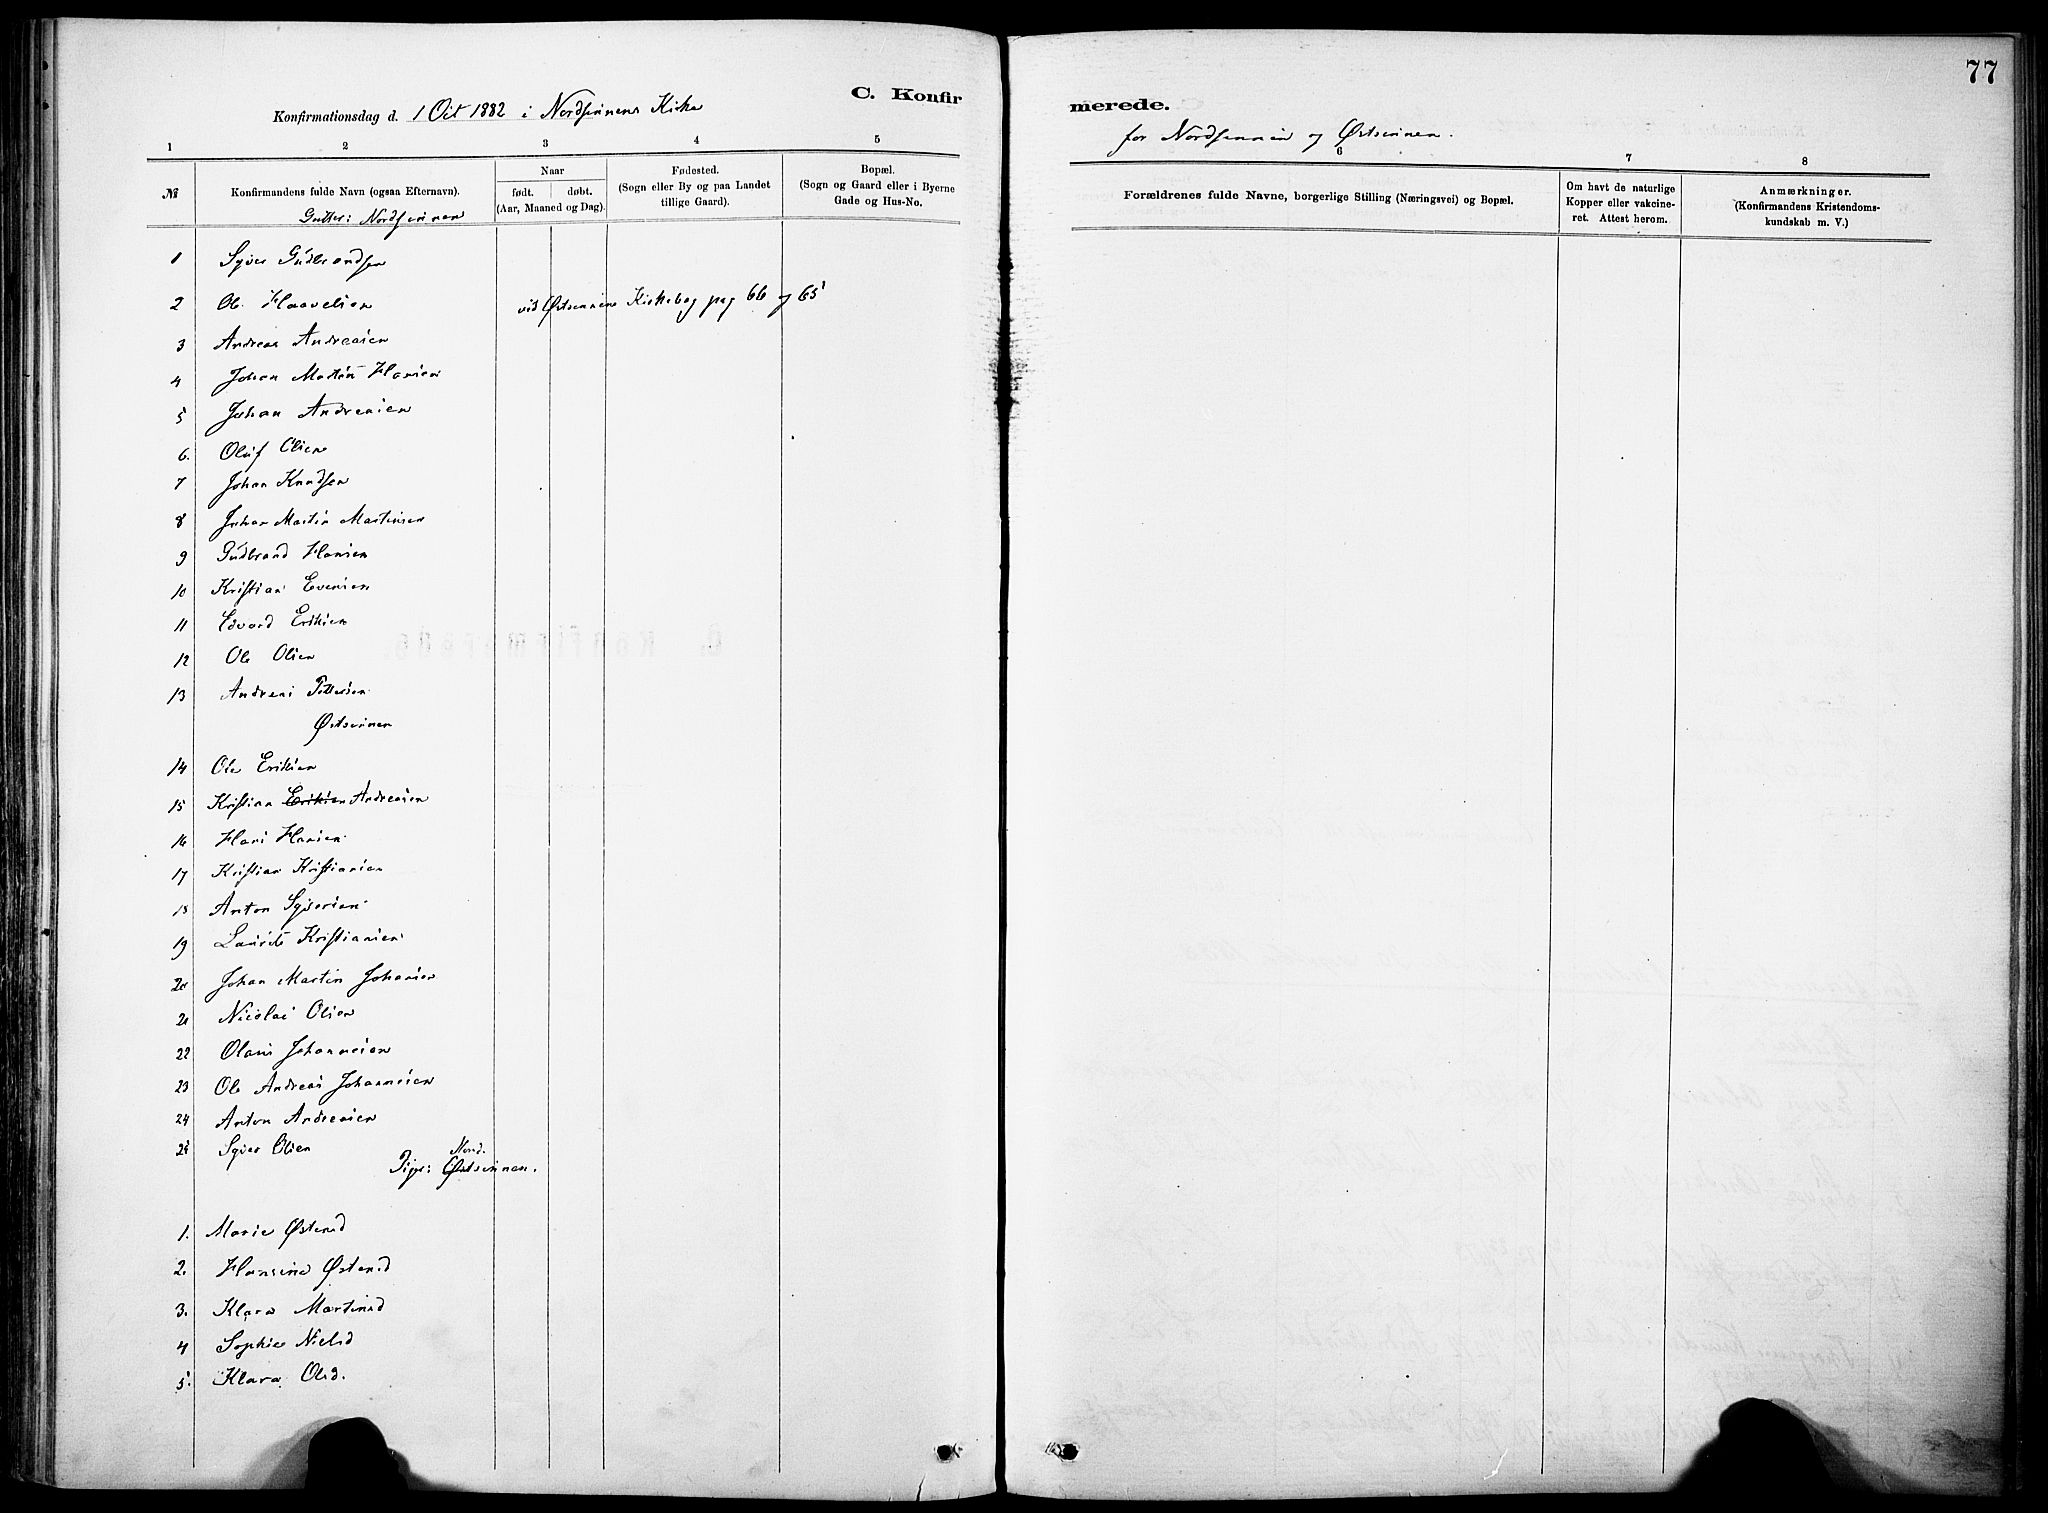 77
C. Konfirmerede.
Konfirmationsdag d. 1 Oct 1882 i Nordsinnens Kirke
for Nordsinnen og Østsinnen.
1 2 3 4 5 6 7 8
№
Konfirmandens fulde Navn (ogsaa Efternavn).
Naar
født. døbt.
(Aar, Maaned og Dag).
Fødested.
(Sogn eller By og paa Landet
tillige Gaard).
Bopæl.
(Sogn og Gaard eller i Byerne
Gade og Hus-No.
Forældrenes fulde Navne, borgerlige Stilling (Næringsvei) og Bopæl.
Om havt de naturlige
Kopper eller vakcine-
ret. Attest herom.
Anmærkninger.
(Konfirmandens Kristendoms-
kundskab m. V.)
Gutter: Nordsinnen
1 Syver Gudbrandsen
2 Ole Haavelsen vid Østsinnens Kirkebog pag 66 og 65
3 Andreas Andreasen
4 Johan Martin Hansen
5 Johan Andreasen
6. Oluf Olsen
7 Johan Knudsen
8 Johan Martin Martinsen
9 Gudbrand Hansen
10 Kristian Evensen
11 Edvard Eriksen
12 Ole Olsen
13 Andreas Pettersen
Østsinnen
14 Ole Eriksen
15 Kristian Eriksen Andreasen
16 Hans Hansen
17 Kristian Kristiansen
18 Anton Syversen
19 Laurits Kristiansen
20 Johan Martin Johansen
21 Nicolai Olsen
22 Olaus Johannesen
23 Ole Andreas Johannesen
24 Anton Andreasen
25 Syver Olsen
Nord.
Piger: Østsinnen.
1. Marie Østensd
2. Hansine Østensd
3. Klara Martinsd
4 Sophie Nielsd
5. Klara Olsd.